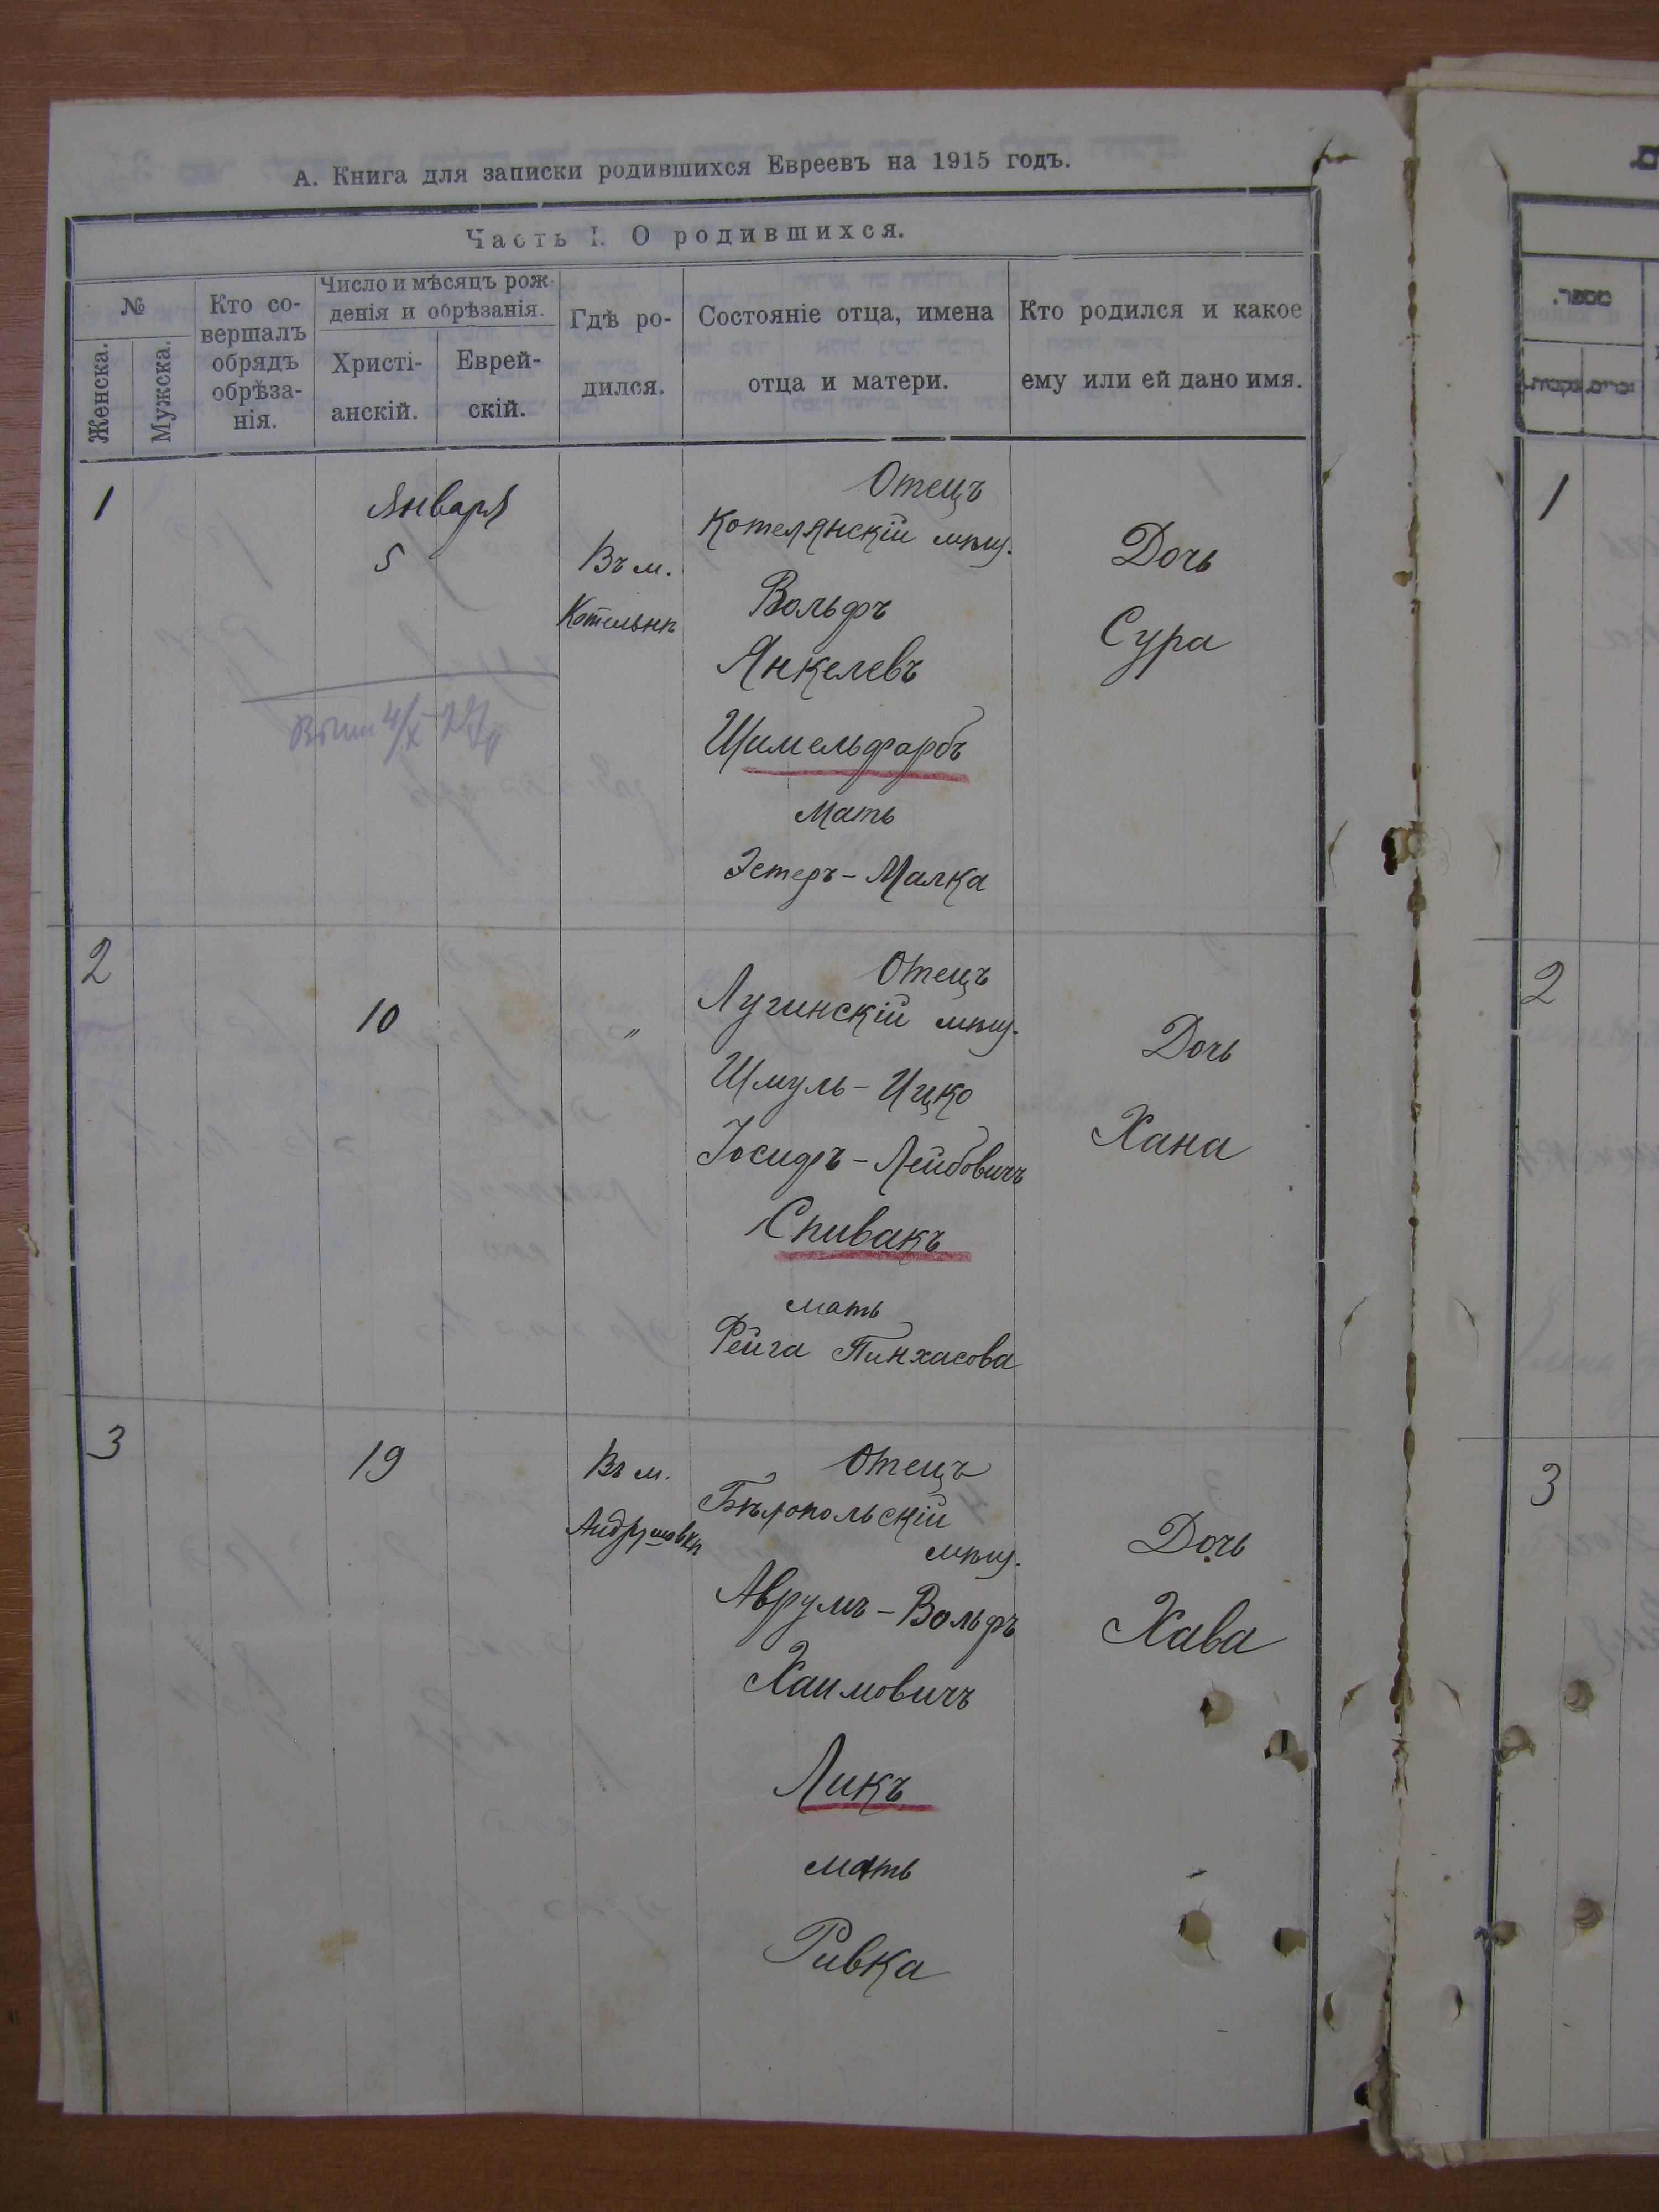 А. Книга для записки родившихся Евреевъ на 1915 годъ.
Часть I. О родившихся.
№
Женска.
Мужска.
Кто со-
вершалъ
обрядъ
обрѣза-
нія.
Число и мѣсяцъ рож-
денія и обрѣзанія.
Христі-
анскій.
Еврей-
скій.
Гдѣ ро-
дился.
Состояніе отца, имена
отца и матери.
Кто родился и какое
ему или ей дано имя.
1
Января
5
Въ м.
Котельнѣ
Отецъ
Котелянскій мѣщ.
Вольфъ
Янкелевъ
Шимельфарбъ
Мать
Эстеръ-Малка
Дочь
Сура
2
10
"
Отецъ
Лугинскій мѣщ.
Шмуль-Ицко
Іосифъ-Лейбовичъ
Спивакъ
мать
Фейга Пинхасова
Дочь
Хана
3
19
Въ м.
Андрушовкѣ
Отецъ
Бѣлопольскій
мѣщ.
Аврумъ-Вольфъ
Хаимовичъ
Ликъ
мать
Ривка
Дочь
Хава
1
2
3